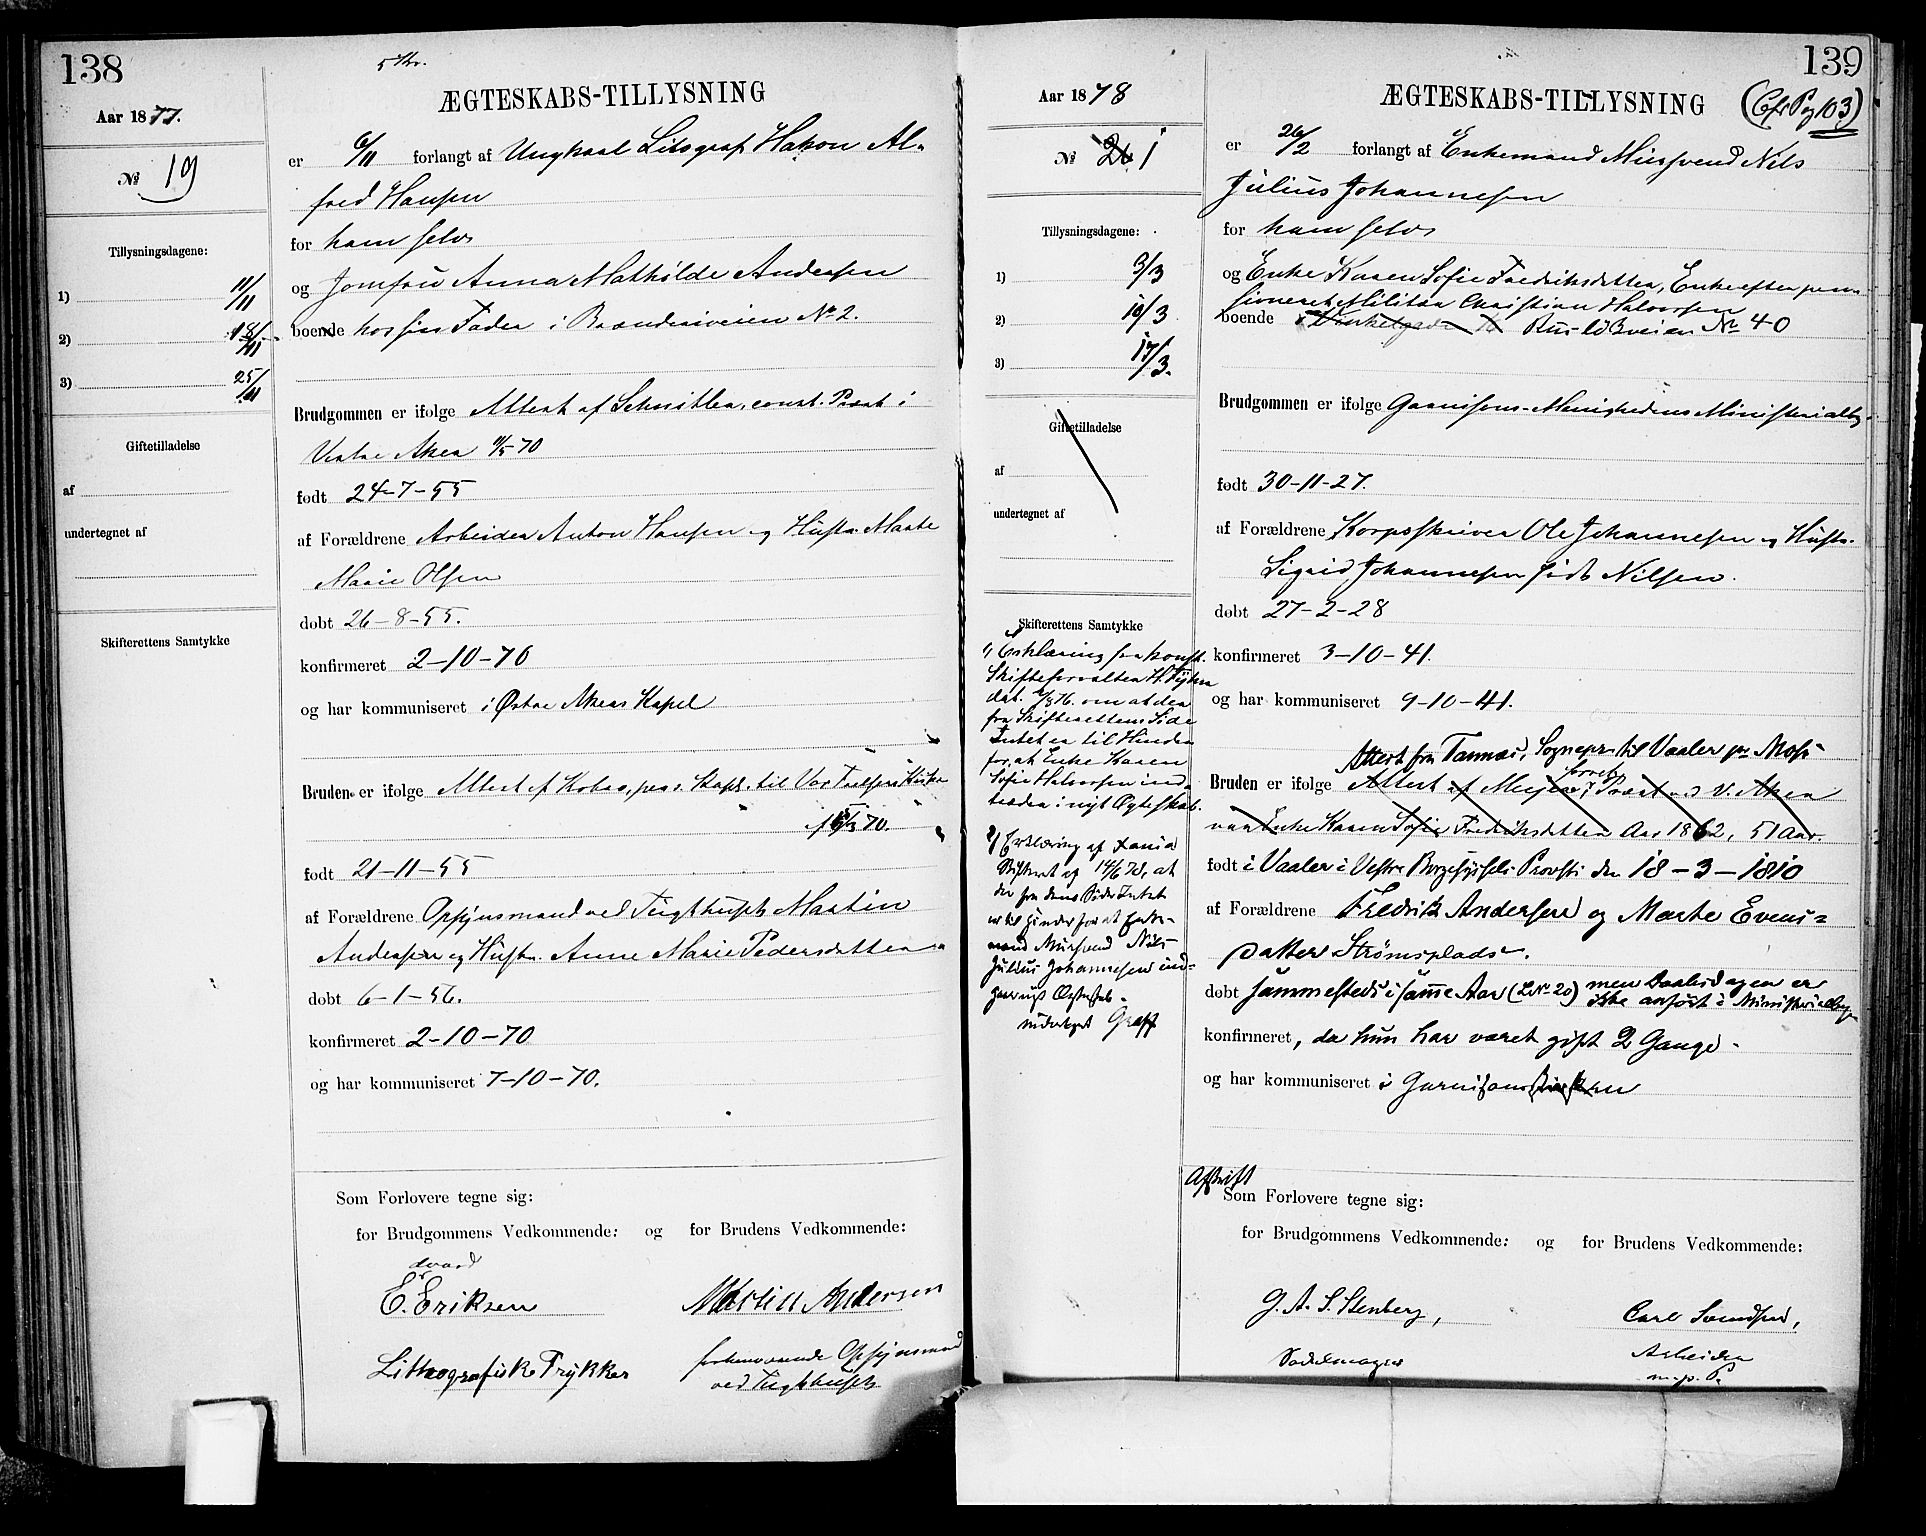 138
5 Kr.
Aar 1877.
№ 19
Tillysningsdagene:
1) 11/11
2) 18/11
3) 25/11
Giftetilladelse
af
undertegnet af
Skifterettens Samtykke
ÆGTESKABS-TILLYSNING
er 6/11 forlangt af Ungkarl Litograf Hakon Al-
fred Hansen
for ham selv
og Jomfru Anna Mathilde Andersen
boende hos sin Fader i Brænderiveien No 2.
Brudgommen er ifølge Attest af Schnitler, const. Præst i
Vestre Aker 11/5 70
født 24-7-55
af Forældrene Arbeider Anton Hansen og Hustr. Marte
Marie Olsen
døbt 26-8-55.
konfirmeret 2-10-70
og har kommuniseret i Østre Akers Kapel
Bruden er ifølge Attest af pers. Kapl. til Vor Frelsers Kirke
født 21-11-55
af Forældrene Opsynsmand ved Tugthuset Martin
Andersen og Hustr. Anne Marie Pedersdatter
døbt 6-1-56.
konfirmeret 2-10-70
og har kommuniseret 7-10-70.
Som Forlovere tegne sig:
for Brudgommens Vedkommende: og for Brudens Vedkommende:
dvard
E. Eriksen Martin Andersen
Lithografiske Trykker forhenværende Opsynsmand
ved Tugthuset
139
Aar 1878
№ 20 1
Tillysningsdagene:
1) 3/3
2) 10/3
3) 17/3.
Giftetilladelse
af
undertegnet af
Skifterettens Samtykke
1) Erklæring fra konst.
Skifteforvalter H.
dat. om at der
fra Skifterettens Side
Intet er til Hinder
for, at Enke Karen
Sofie Halvorsen ind-
træder i nyt Ægteskab.
2) Erklæring af
Skifteret af 14/6 70, at
der fra dens Side Intet
er til Hinder for at Enke-
mand Mursvend Nils
Julius Johannesen ind-
gaar nyt Ægteskab.
undertegnet Graff
ÆGTESKABS-TILLYSNING (Cfr Pg 103)
er 26/2 forlangt af Enkemand Mursvend Nils
Julius Johannesen
for ham selv
og Enke Karen Sofie Fredriksdatter, Enke efter pen-
sioneret Militær Christian Halvorsen
boende i Vinkelgaden Ruseløkveien № 40
Brudgommen er ifølge Garnisons-Menighedens Ministerialbog
født 30-11-27.
af Forældrene Korpsskriver Ole Johannesen og Hustr.
Sigrid Johannesen født Nilsen.
døbt 27-2-28
konfirmeret 3-10-41.
og har kommuniseret 9-10-41.
Attest fra Tannæs, Sognepr. til Vaaler pr Moss
Bruden er ifølge Attest af Meyer, Præst ved V. Aker
var Enke Karen Sofie Fredriksdatter Aar 1862, 51 Aar.
født i Vaaler i Vestre Borgesyssels Provsti den 18-3-1810
af Forældrene Fredrik Andersen og Marte Evens-
datter Strømsplads.
døbt sammesteds i samme Aar (L. No 20) men Daabsdagen er
ikke anført i Ministerialbogen
konfirmeret, da hun har været gift 2 Gange.
og har kommuniseret i Garnisonskirken
Afskrift
Som Forlovere tegne sig:
for Brudgommens Vedkommende: og for Brudens Vedkommende:
G. A. S. Stenberg, Carl Svendsen,
Sadelmager Arbeider
m. p. P.